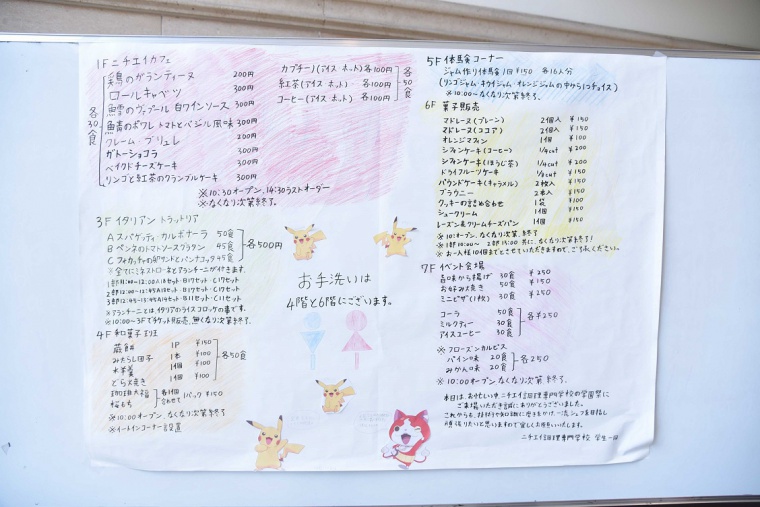 1F ニチエイカフェ
鶏のガランティーヌ 200円
ロールキャベツ 300円
鱈のヴァプール 白ワインソース 300円
鯖のポワレ トマトとバジル風味 300円
クレーム・ブリュレ 200円
ガトーショコラ 300円
ベイクドチーズケーキ 300円
リンゴと紅茶のクランブルケーキ 300円
各30食
カプチーノ(アイス ホット) 各100円
紅茶(アイス ホット) 各100円
コーヒー(アイス ホット) 各100円
各50食
※10:30オープン、14:30ラストオーダー
※なくなり次第終了。
3F イタリアン トラットリア
A スパゲッティ・カルボナーラ 50食
B ペンネのトマトソースグラタン 45食
C フォカッチャの卵サンドとパンナコッタ 45食
各500円
※全てにミネストローネとアランチーニが付きます。
1部11:00~12:00 A18セット・B17セット・C17セット
2部12:00~12:45 A18セット・B17セット・C17セット
3部12:45~13:45 A14セット・B11セット・C11セット
※アランチーニとは、イタリアのライスコロッケの事です。
※10:00~3Fでチケット販売、無くなり次第終了。
4F 和菓子班
蕨餅 1P ¥150
みたらし団子 1本 ¥100
水羊羹 1個 ¥100
どら焼き 1個 ¥100
各50食
珈琲大福
桜もち
各1個合わせて 1パック ¥150
※10:00オープン、なくなり次第終了
※イートインコーナー設置
お手洗いは
4階と6階にございます。
5F 体験コーナー
ジャム作り体験 1回¥150 各16人分
(リンゴジャム・キウイジャム・オレンジジャムの中から1つチョイス)
※10:00~なくなり次第終了。
6F 菓子販売
マドレーヌ(プレーン) 2個入 ¥150
マドレーヌ(ココア) 2個入 ¥150
オレンジマフィン 1個 ¥100
シフォンケーキ(コーヒー) 1/4cut ¥200
シフォンケーキ(ほうじ茶) 1/4cut ¥200
ドライフルーツケーキ 1/8cut ¥150
パウンドケーキ(キャラメル) 2枚入 ¥150
ブラウニー 2本入 ¥150
クッキーの詰め合わせ 1袋 ¥100
シュークリーム 1個 ¥150
レーズン&クリームチーズパン 1個 ¥150
※10:00オープン、なくなり次第、終了
※1部10:00~ 2部13:00 共に、なくなり次第終了!
※お一人様10個までとさせていただきますので、ご了承ください。
7F イベント会場
旨味から揚げ 30食 ¥250
お好み焼き 50食 ¥150
ミニピザ(1枚) 30食 ¥250
コーラ 50食
ミルクティー 30食
アイスコーヒー 30食
各¥250
※フローズンカルピス
パイン味 20食
みかん味 20食
各250
※10:00オープン なくなり次第終了。
本日は、お忙しい中ニチエイ調理専門学校の学園祭に
ご来場いただき誠にありがとうございました。
ニチエイ調理専門学校 学生一同